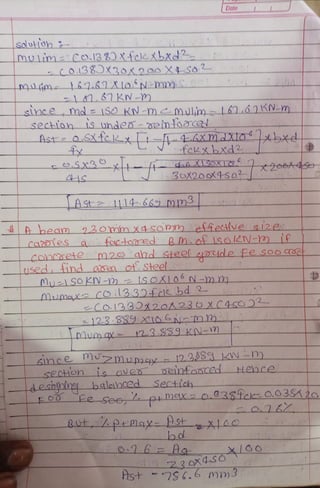 Date
solution :-
mulim = (0.138) x fck x bxd²
= (0.138) x 30 x 200 x 450²
mulim = 167.67 x 10⁶ N-mm
= 167.67 KN-m
since, md = 150 KN-m < mulim = 167.67 KN-m
section is under-reinforced
Ast = 0.5xfck x [1-√1- 4.6xmdx10⁶] x bxd
fy fck x bxd²
= 0.5x30 x [1-√1- 4.6x150x10⁶] x 200x450
415 30x200x450²
[Ast = 1114.669 mm²]
A beam 230mm x 450mm effective size
carries a factored B.M. of 150KN-m if
concrete m20 and steel grade Fe 500 are
used, find area of steel.
Mu = 150KN-m = 150X10⁶ N-mm
Mumax = (0.133) fck bd²
= (0.133) x 20 x 230 x (450)²
= 123.889 x10⁶ N-mm
[Mumax = 123.889 KN-m]
since Mu > Mumax = 123.889 KN-m
section is over reinforced Hence
designing balanced section
For Fe 500, % ptmax = 0.038fck = 0.038x20
= 0.76%
But, % ptmax = Ast x 100
bd
0.76 = Ast x 100
230x450
Ast = 786.6 mm²